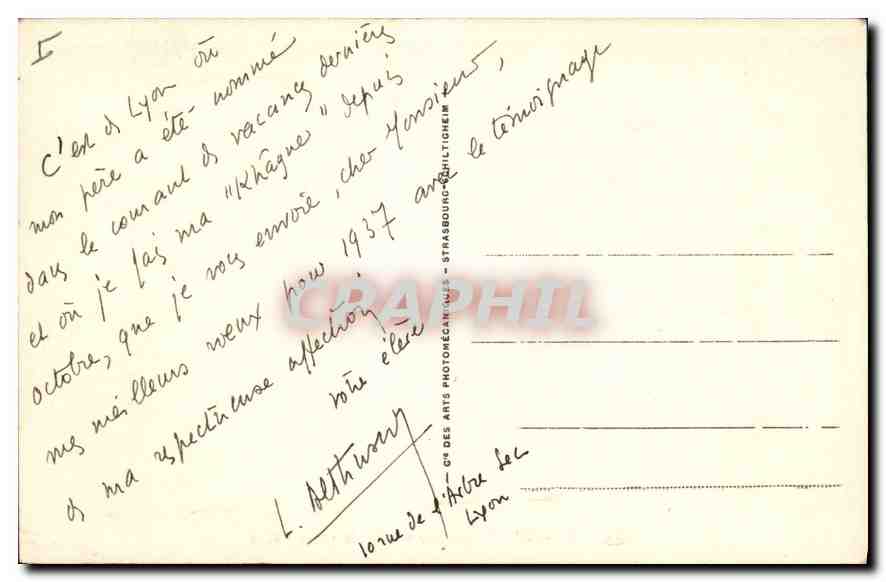 I
C'est de Lyon où
mon père a été nommé
dans le courant des vacances dernières
et où je fais ma "Khâgne" depuis
octobre, que je vous envoie, cher Monsieur,
mes meilleurs vœux pour 1937 avec le témoignage
de ma respectueuse affection
votre élève
L. Althusser
10 rue de l'Arbre Sec
Lyon
Cie DES ARTS PHOTOMÉCANIQUES - STRASBOURG-SCHILTIGHEIM
CRAPHIL